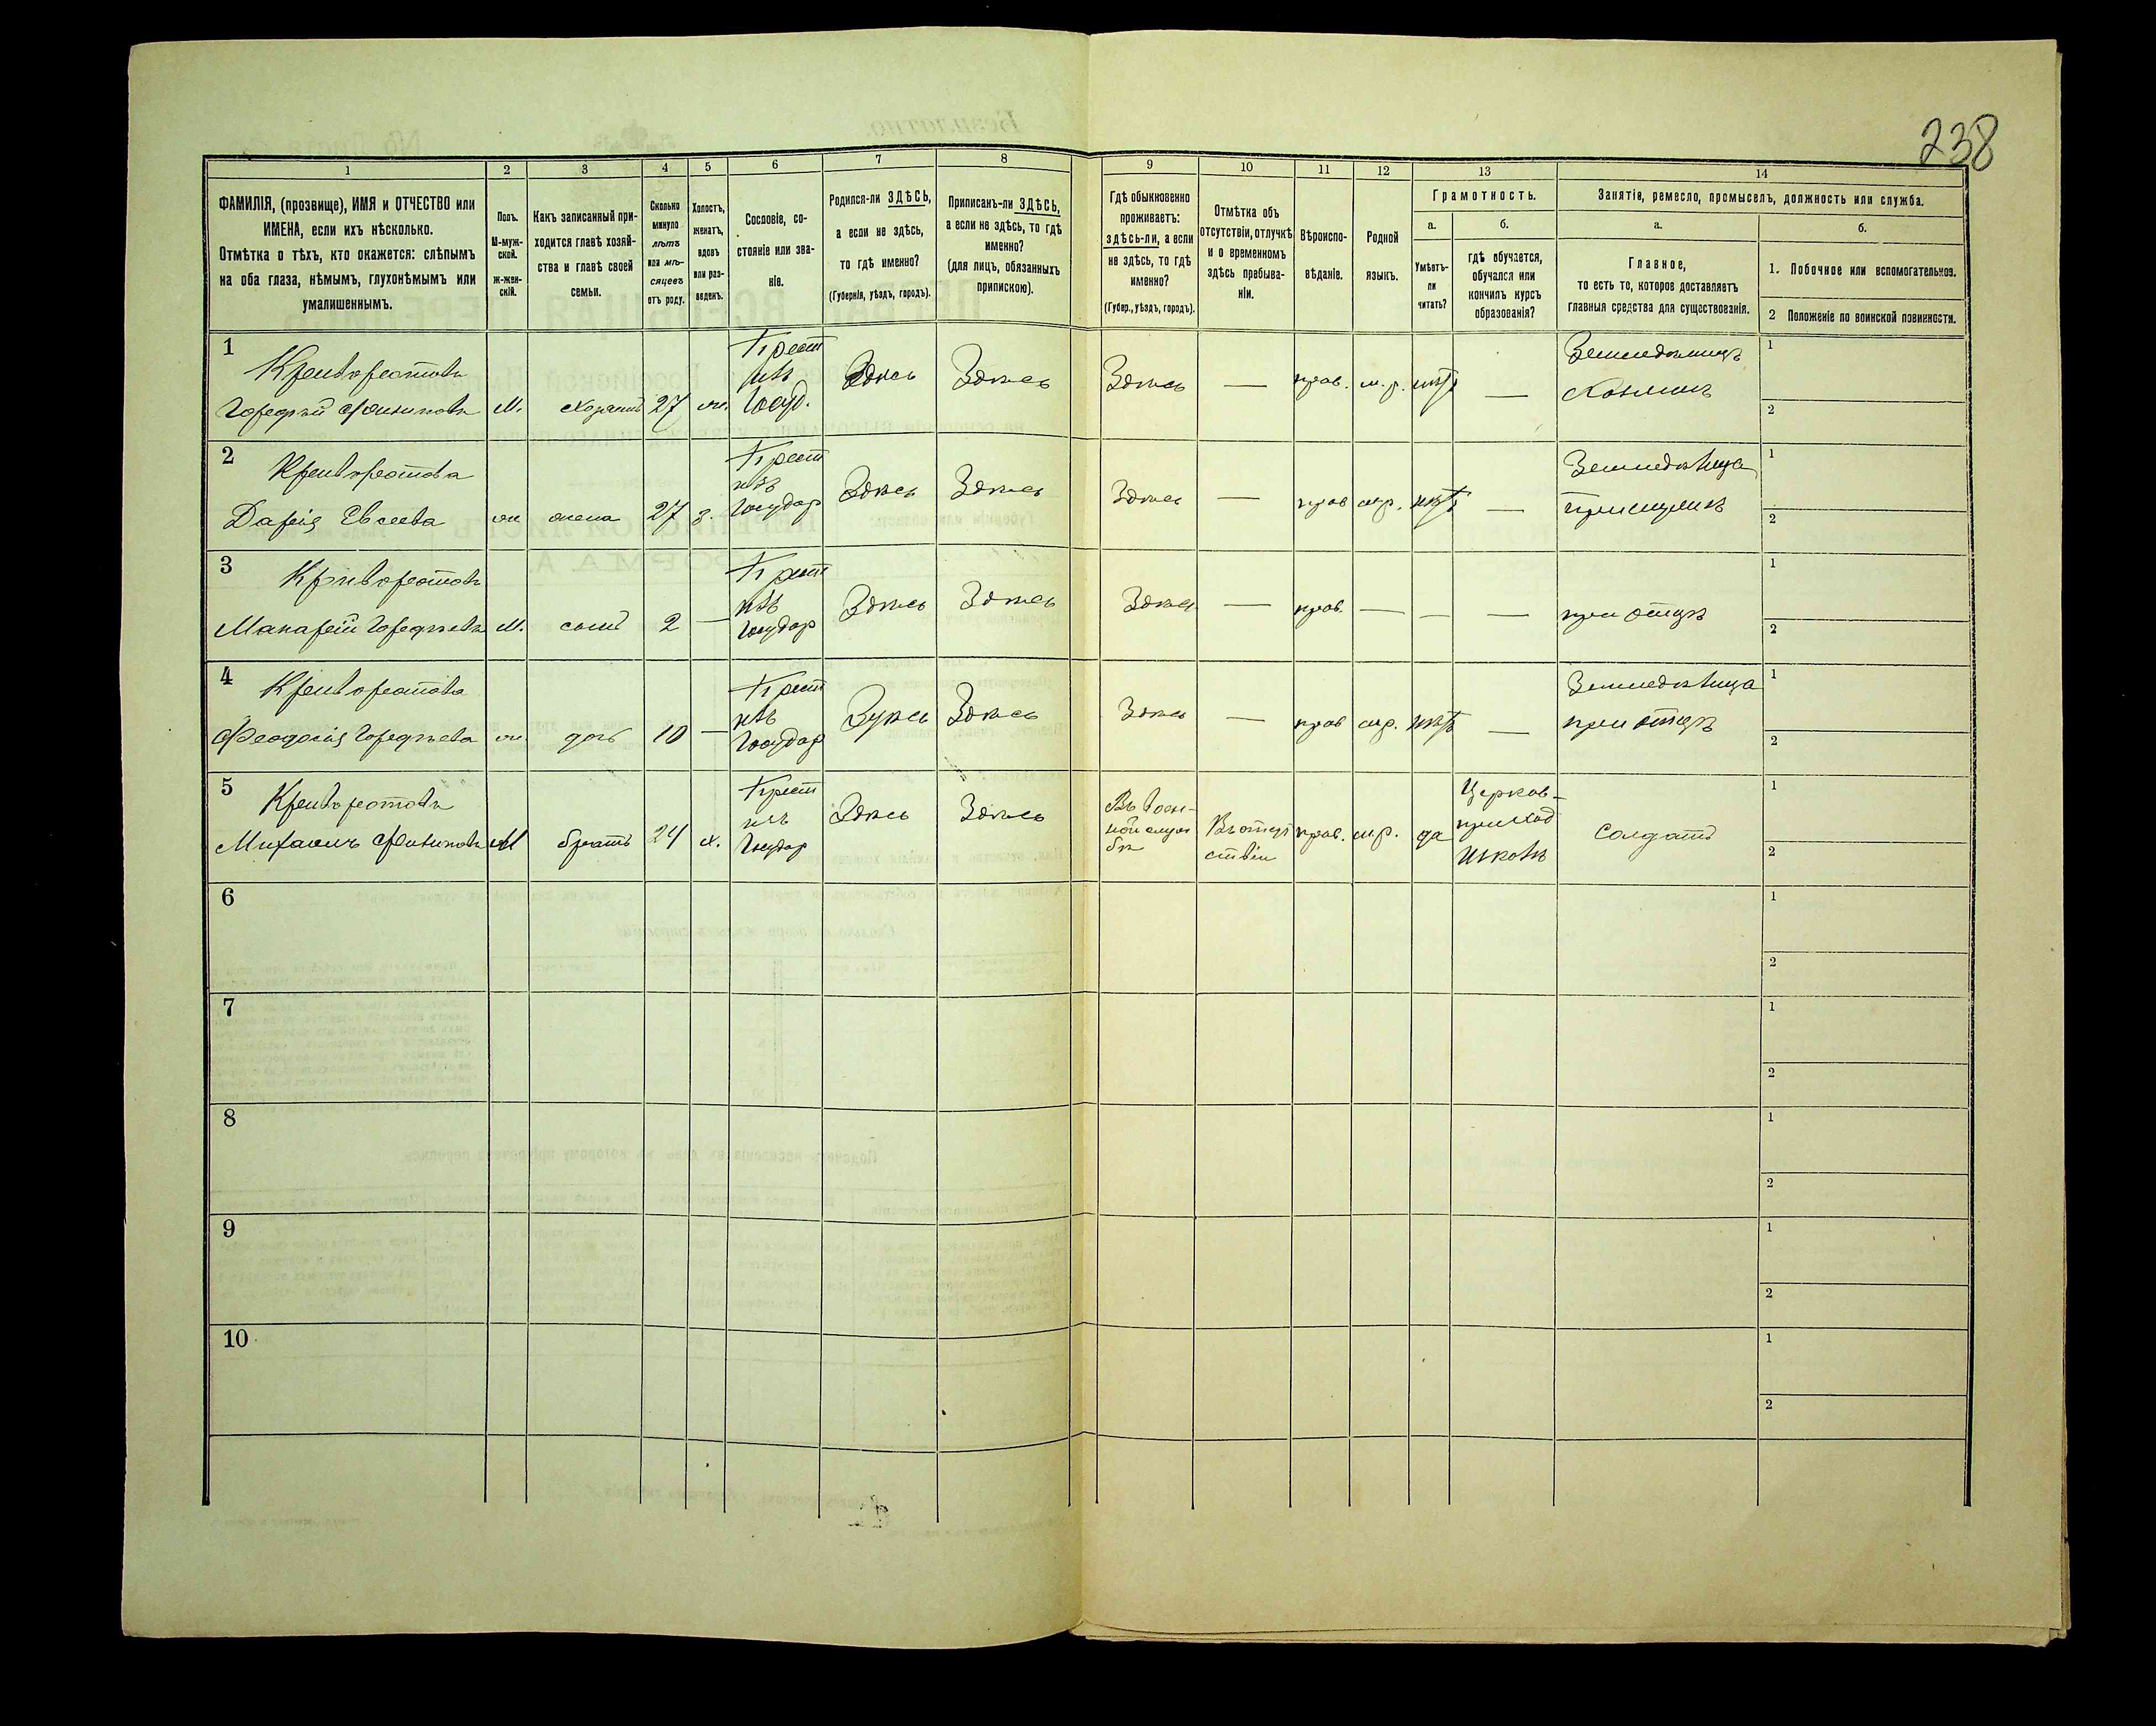 238
1
2
3
4
5
6
7
8
9
10
11
12
13
14
ФАМИЛІЯ, (прозвище), ИМЯ и ОТЧЕСТВО или
ИМЕНА, если ихъ нѣсколько.
Отмѣтка о тѣхъ, кто окажется: слѣпымъ
на оба глаза, нѣмымъ, глухонѣмымъ или
умалишеннымъ.
Полъ.
М-муж-
ской.
ж-жен-
скій.
Какъ записанный при-
ходится главѣ хозяй-
ства и главѣ своей
семьи.
Сколько
минуло
лѣтъ
или мѣ-
сяцевъ
отъ роду.
Холостъ,
женатъ,
вдовъ
или раз-
веденъ.
Сословіе, со-
стояніе или зва-
ніе.
Родился-ли ЗДѢСЬ,
а если не здѣсь,
то гдѣ именно?
(Губернія, уѣздъ, городъ).
Приписанъ-ли ЗДѢСЬ,
а если не здѣсь, то гдѣ
именно?
(для лицъ, обязанныхъ
припискою).
Гдѣ обыкновенно
проживаетъ:
здѣсь-ли, а если
не здѣсь, то гдѣ
именно?
(Губер., уѣздъ, городъ).
Отмѣтка объ
отсутствіи, отлучкѣ
и о временномъ
здѣсь пребыва-
ніи.
Вѣроиспо-
вѣданіе.
Родной
языкъ.
Грамотность.
а.
Умѣетъ-
ли
читать?
б.
гдѣ обучается,
обучался или
кончилъ курсъ
образованія?
Занятіе, ремесло, промыселъ, должность или служба.
а.
Главное,
то есть то, которое доставляетъ
главныя средства для существованія.
б.
1. Побочное или вспомогательное.
2 Положеніе по воинской повинности.
1
Криворотовъ
М. хозяинъ 27 ж.
Крест
Госуд.
Здѣсь Здѣсь Здѣсь — прав. м.р. нѣтъ —
1
2
2
Криворотова
Дарія Евсеева ж жена 27 з.
Крест
изъ
Государ
Здѣсь Здѣсь Здѣсь — прав м.р. нѣтъ —
1
2
3
Криворотовъ
Макарій М. сынъ 2 —
Крест
изъ
Государ
Здѣсь Здѣсь Здѣсь — прав. — — — при отцѣ
1
2
4
Криворотова
Феодосія ж дочь 10 —
Крест
изъ
Государ
Здѣсь Здѣсь Здѣсь — прав м.р. нѣтъ —
при отцѣ
1
2
5
Криворотовъ
Михаилъ М братъ 24 х.
Крест
изъ
Государ
Здѣсь Здѣсь
Въ воен-
ной служ
бѣ
Въ отсут
ствіи
прав. м.р. да
Церков-
приход
школѣ
Солдатъ
1
2
6
1
2
7
1
2
8
1
2
9
1
2
10
1
2